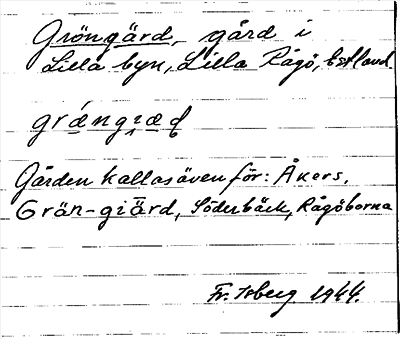 Gröngärd, gård i
Lilla byn, Lilla Rågö, Estland
Gården kallas även för: Åkers,
Grän-giärd, Söderbäck, Rågöborna
Fr. Isberg 1944.